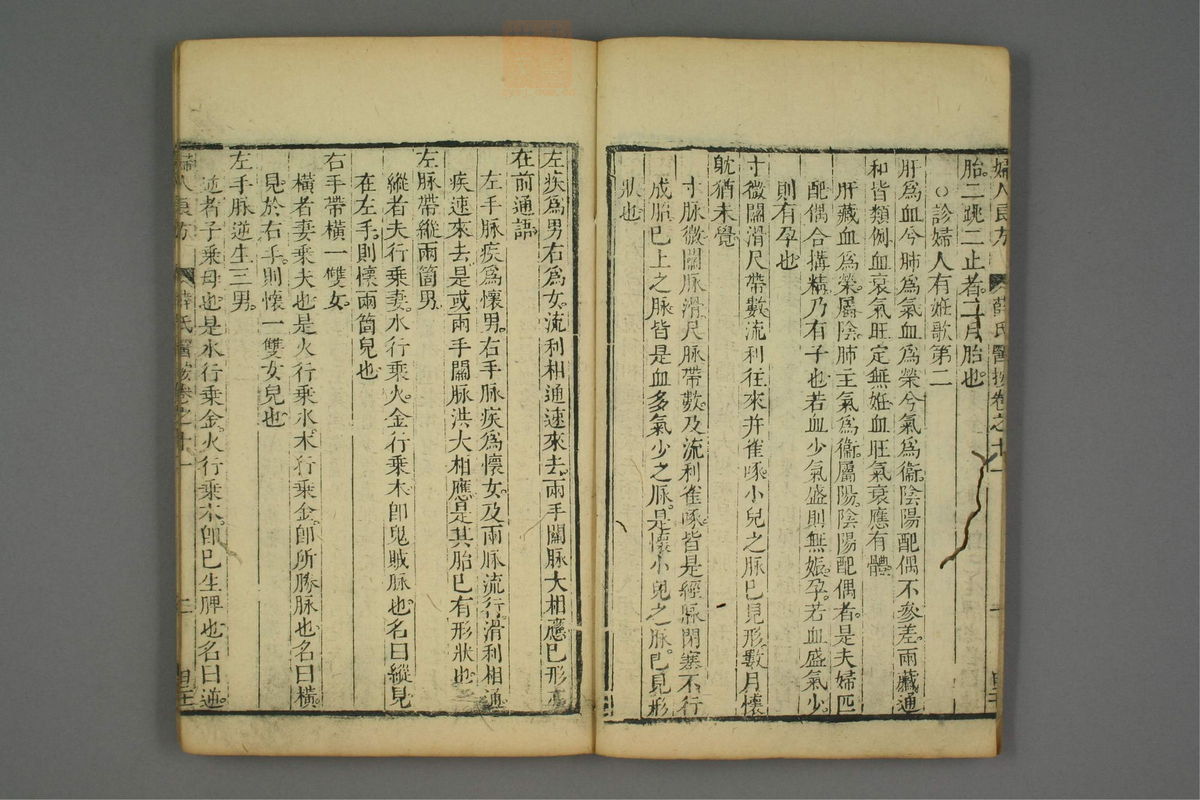 婦人良方 薛氏醫按卷之十一
胎。二跳二止者。二月胎也。
○診婦人有姙歌第二
肝爲血兮肺爲氣血爲榮兮氣爲衞。陰陽配偶不參差。兩臟通
和皆類例。血衰氣旺定無姙血旺氣衰應有體。
肝藏血爲榮。屬陰。肺主氣爲衞。屬陽。陰陽配偶者。是夫婦匹
配偶合搆精乃有子也若血少氣盛則無娠孕。若血盛氣少。
則有孕也
寸微關滑尺帶數流利往來并雀啄。小兒之脉已見形。數月懷
躭猶未覺
寸脉微關脉滑。尺脉帶數。及流利雀啄。皆是經脉閉塞不行
成胎已上之脉皆是血多氣少之脉。是懷小兒之脉。已見形
狀也
左疾爲男右爲女。流利相通速來去。兩手關脉大相應已形亦
在前通語
左手脉疾爲懷男。右手脉疾爲懷女。及兩脉流行。滑利相通
疾速來去。是或兩手關脉洪大相應。是其胎已有形狀也
左脉帶縱兩箇男。
縱者夫行乗妻。水行乗火。金行乗木。卽鬼賊脉也。名曰縱見
在左手。則懷兩箇兒也
右手帶橫一雙女。
橫者妻乗夫也。是火行乗水。木行乗金。卽所勝脉也。名曰橫
見於右手。則懷一雙女兒也
左手脉逆生三男。
逆者子乗母也。是水行乗金。火行乗木。卽已生脾也。名曰逆。
婦人良方 薛氏醫按卷之十一 二